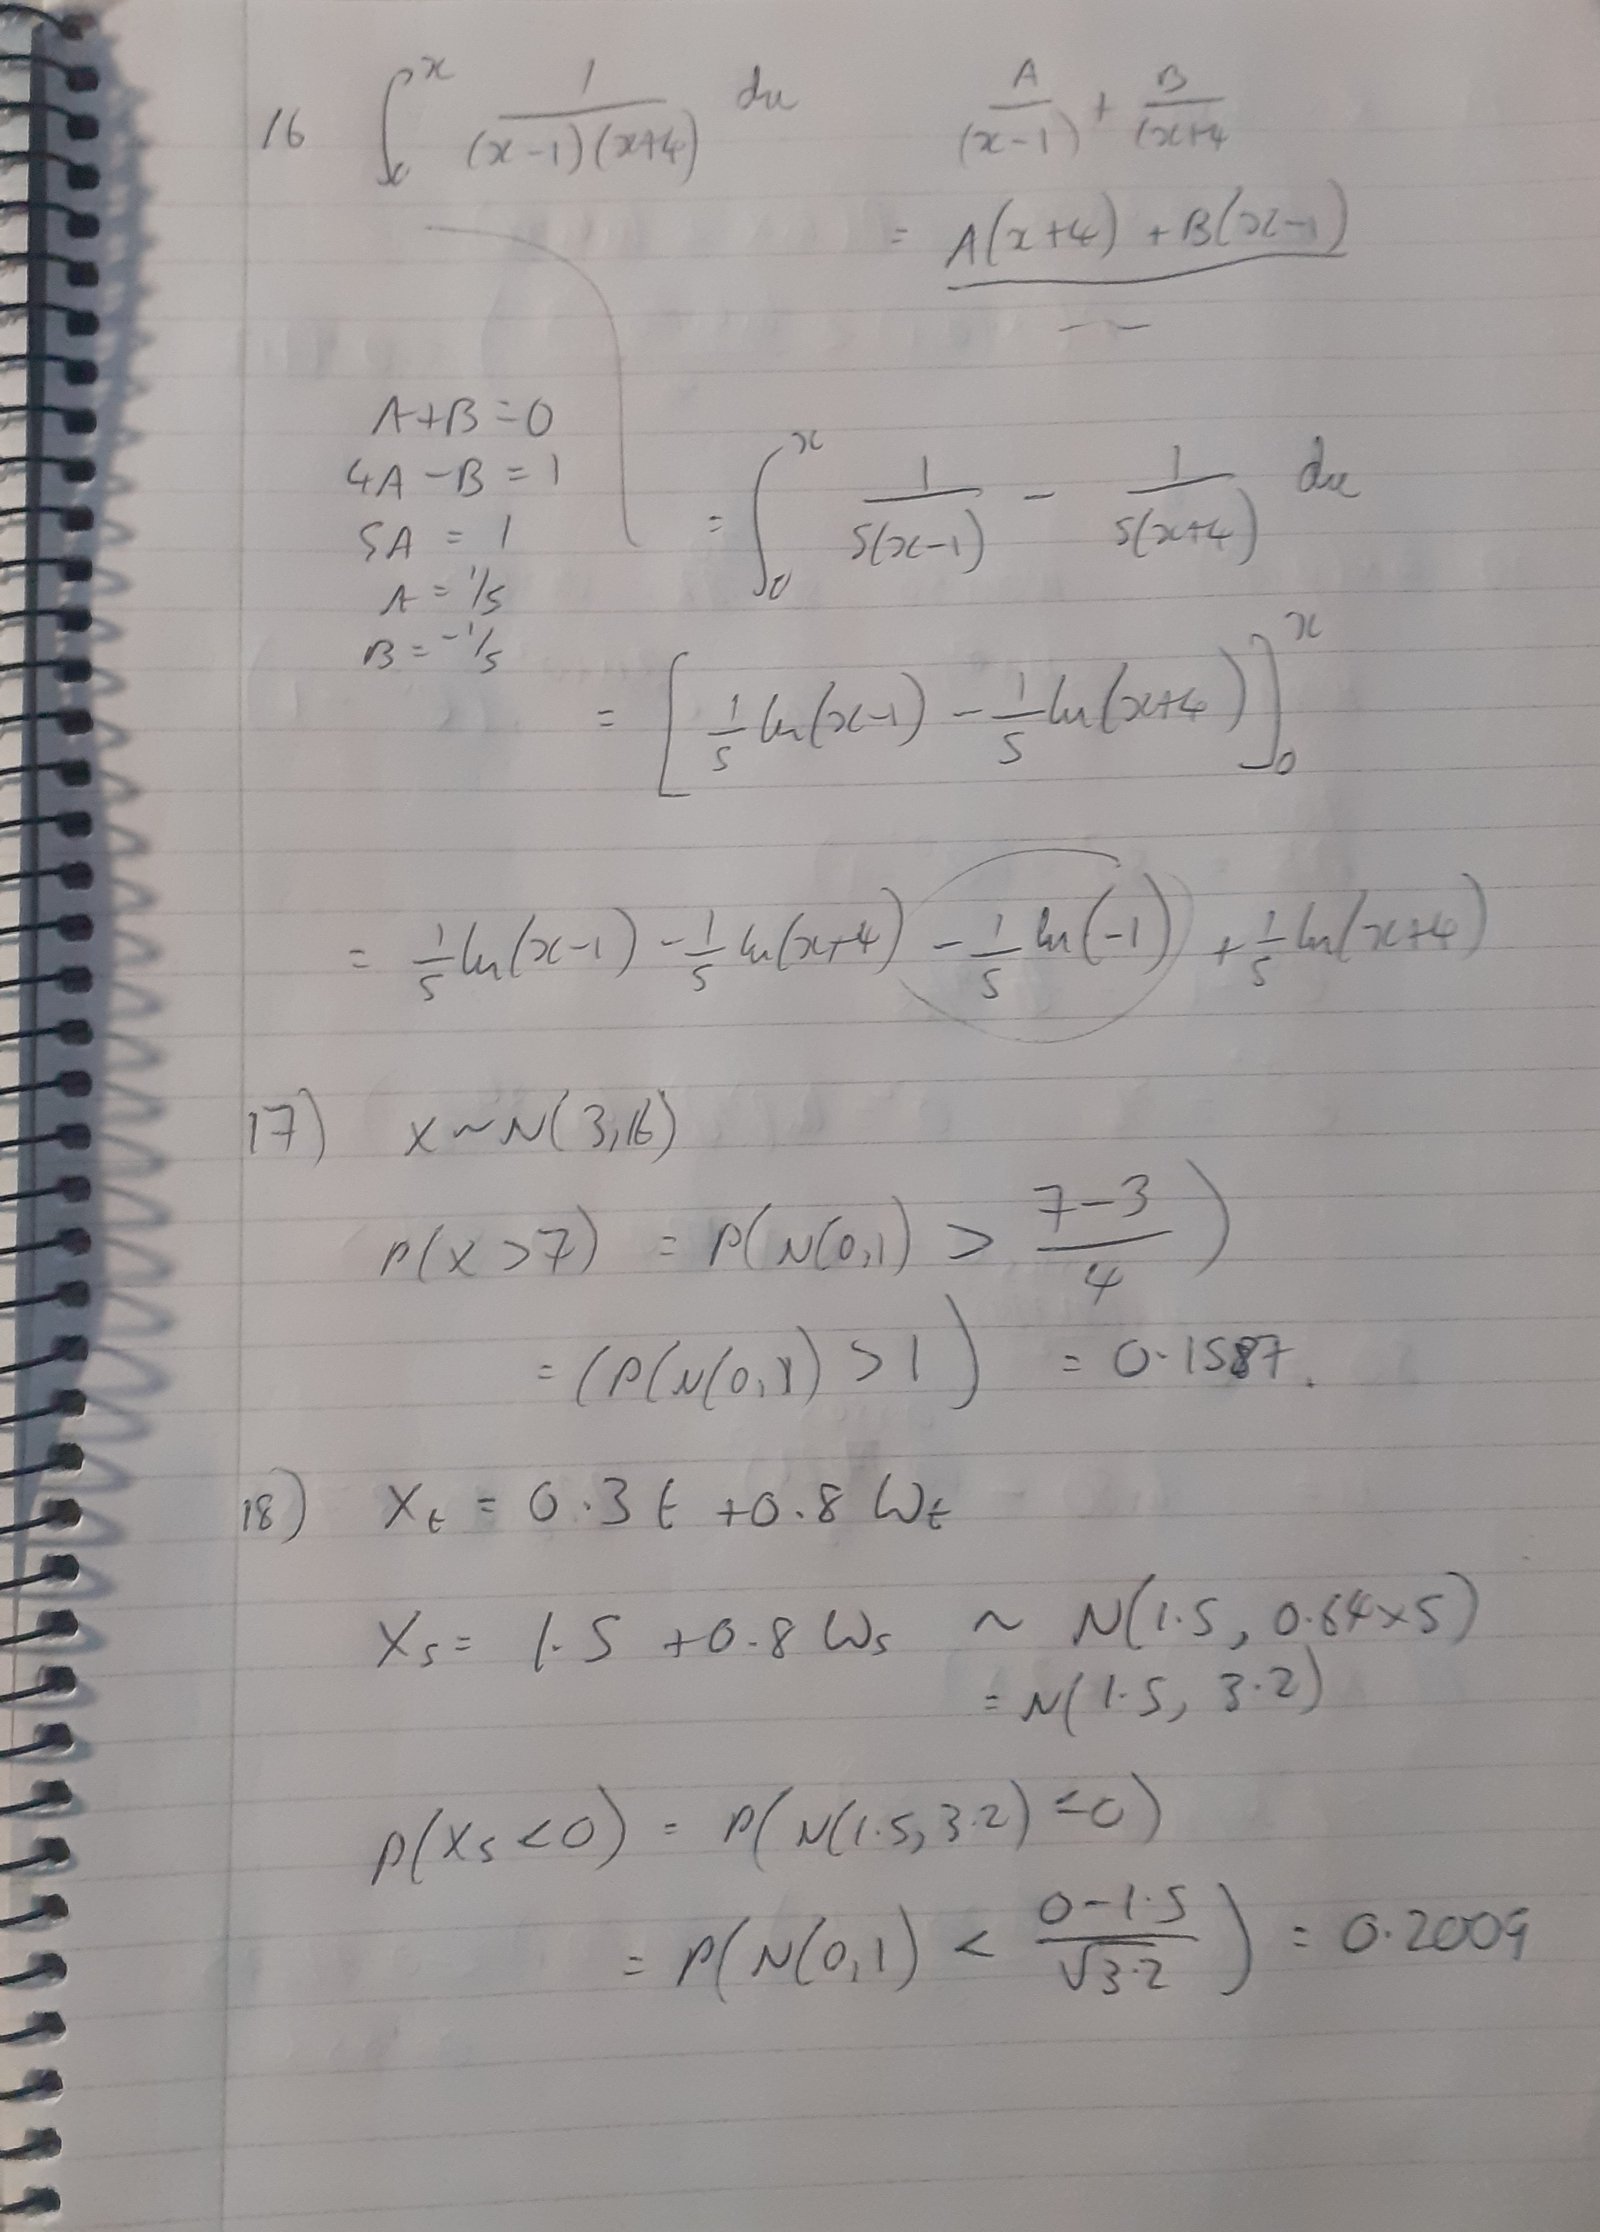 16 ∫₀ˣ 1/((x-1)(x+4)) dx A/(x-1) + B/(x+4
= A(x+4) + B(x-1)
A+B=0
4A-B=1
= ∫₀ˣ 1/(5(x-1)) - 1/(5(x+4)) dx
5A = 1
A = 1/5
B = -1/5
= [1/5 ln(x-1) - 1/5 ln(x+4)]₀ˣ
= 1/5 ln(x-1) - 1/5 ln(x+4) - 1/5 ln(-1) + 1/5 ln(x+4)
17) X~N(3,16)
P(X>7) = P(N(0,1) > (7-3)/4)
= (P(N(0,1) >1) = 0.1587.
18) Xt = 0.3t + 0.8 Wt
X5 = 1.5 + 0.8 W5 ~ N(1.5, 0.64×5)
= N(1.5, 3.2)
P(X5<0) = P(N(1.5, 3.2) <0)
= P(N(0,1) < (0-1.5)/√3.2) = 0.2009